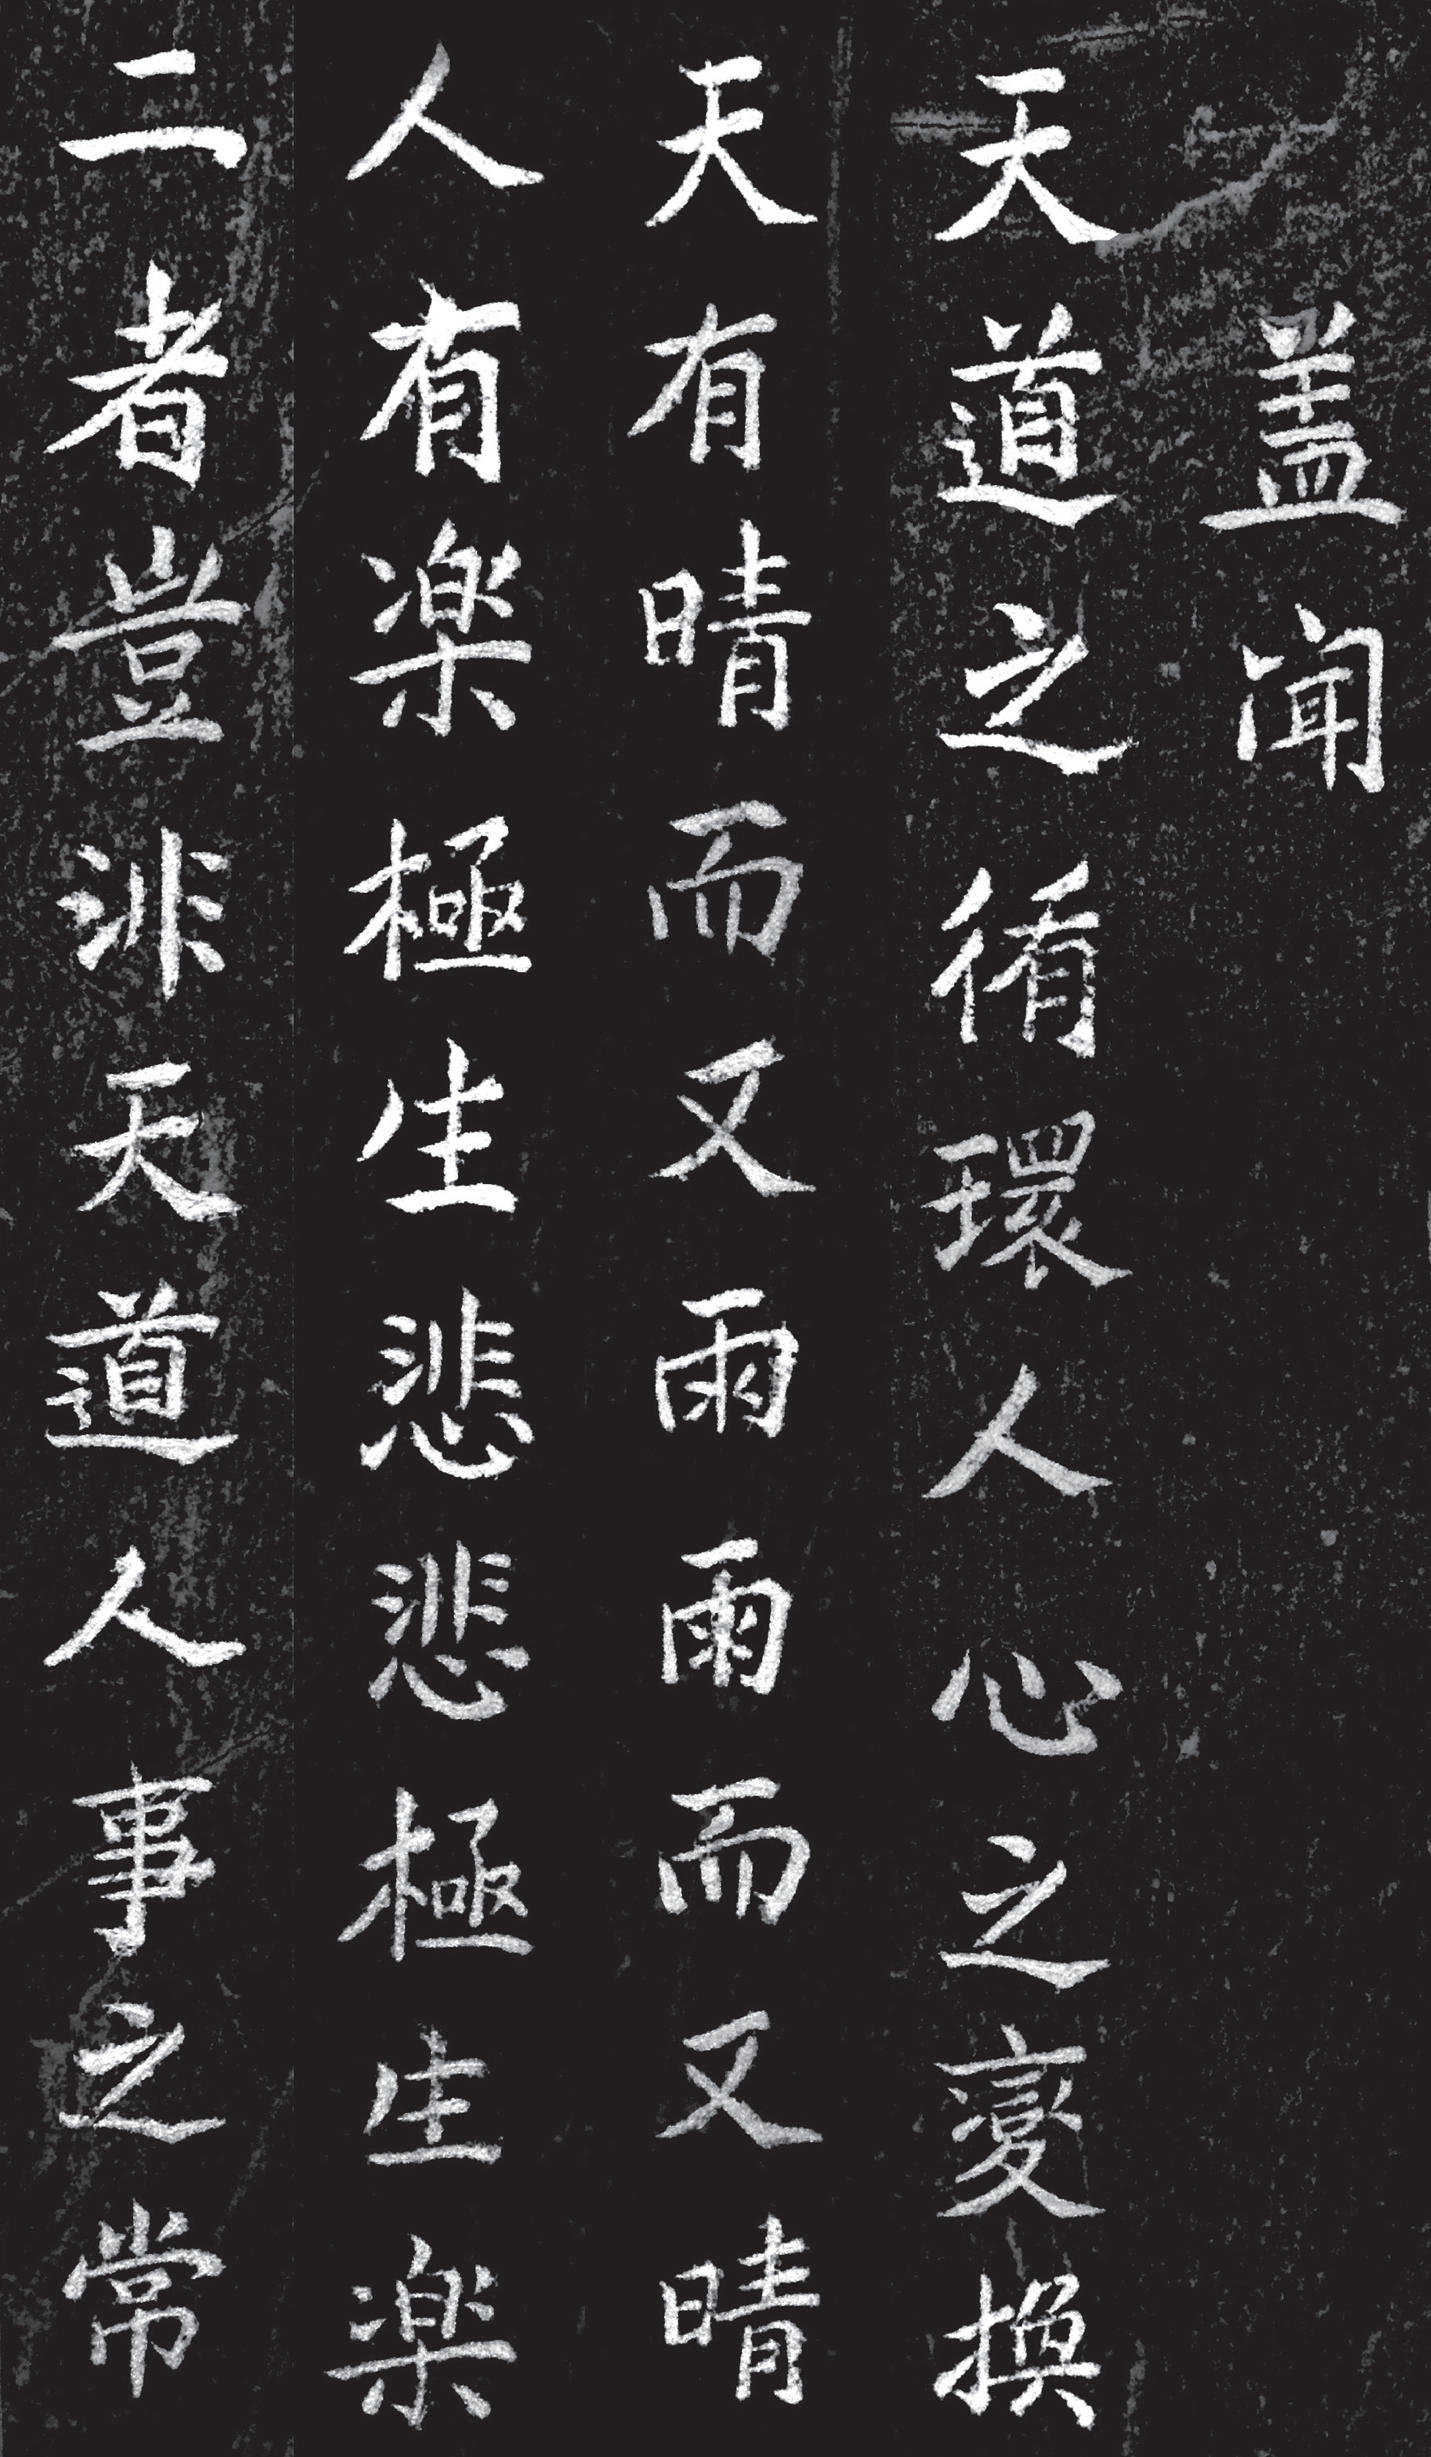 盖闻
天道之循環人心之變換
天有晴而又雨雨而又晴
人有楽極生悲悲極生楽
二者豈非天道人事之常